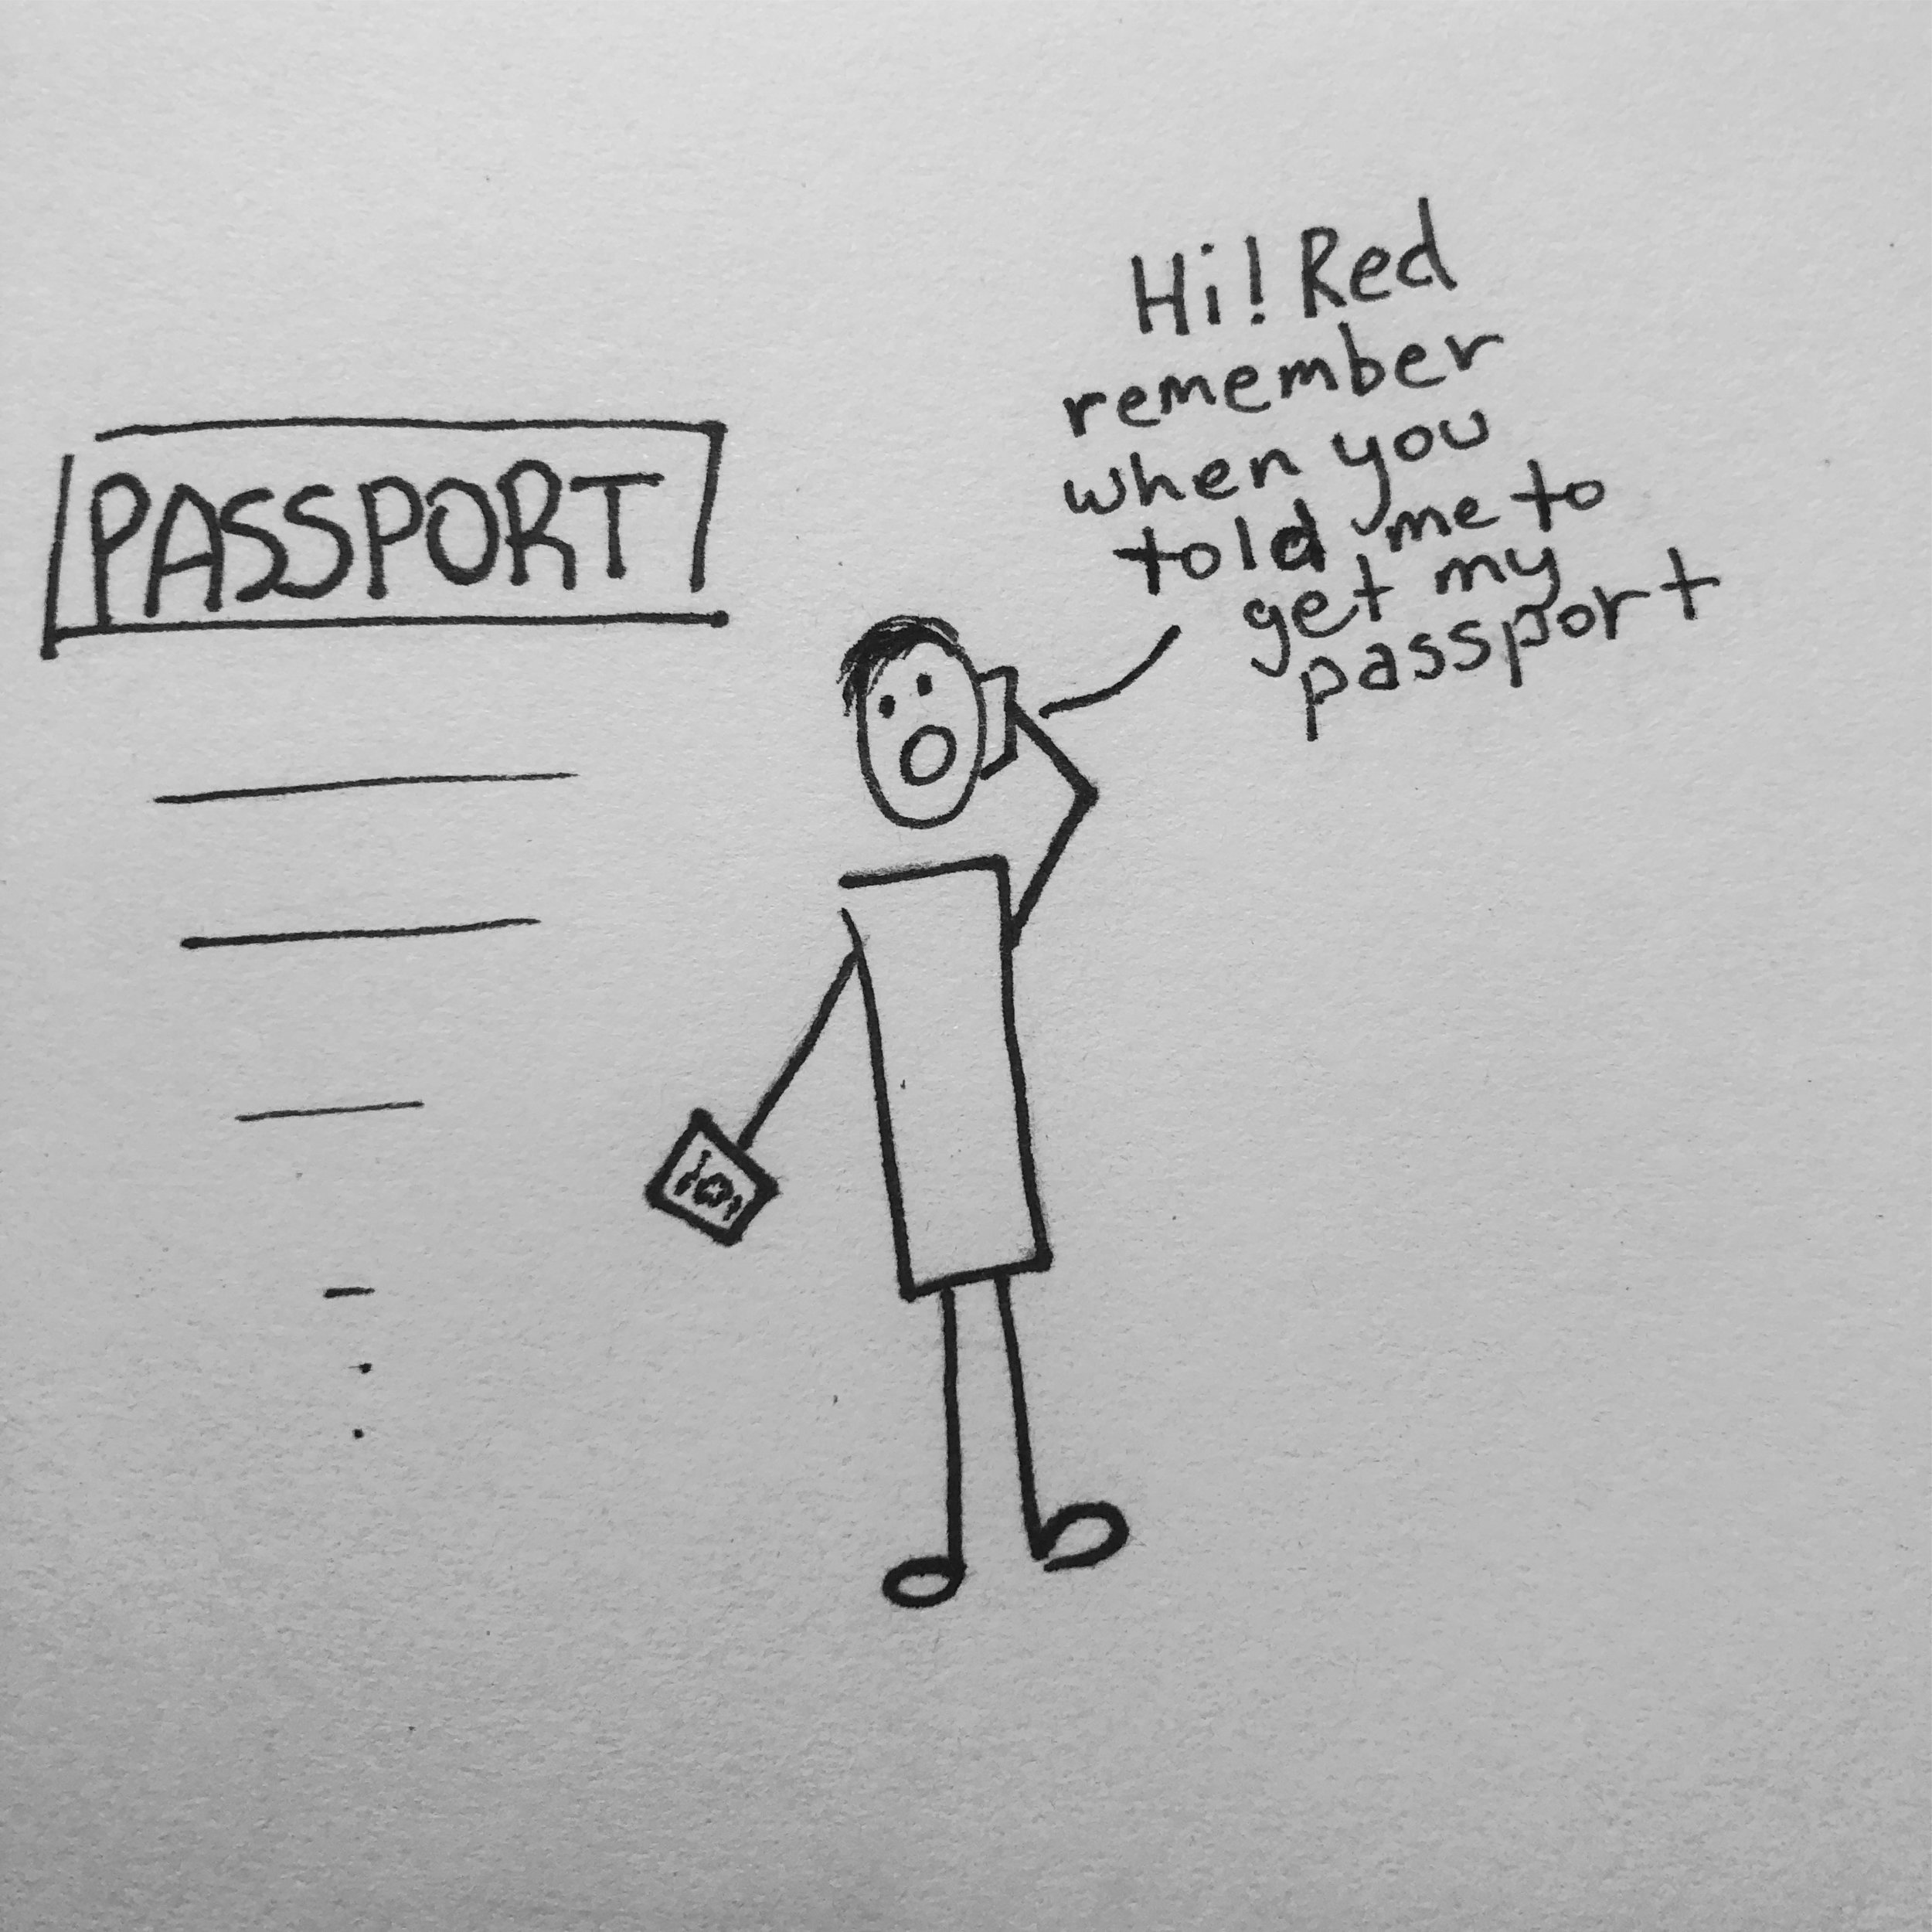 PASSPORT
Hi! Red
remember
when you
told me to
get my
passport